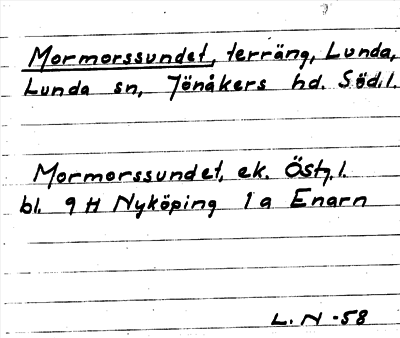 Mormorssundet, terräng, Lunda,
Lunda sn, Jönåkers hd. Södl.
Mormorssundet, ek. Östg. l.
bl. 9 H Nyköping 1 a Enarn
L. N -58